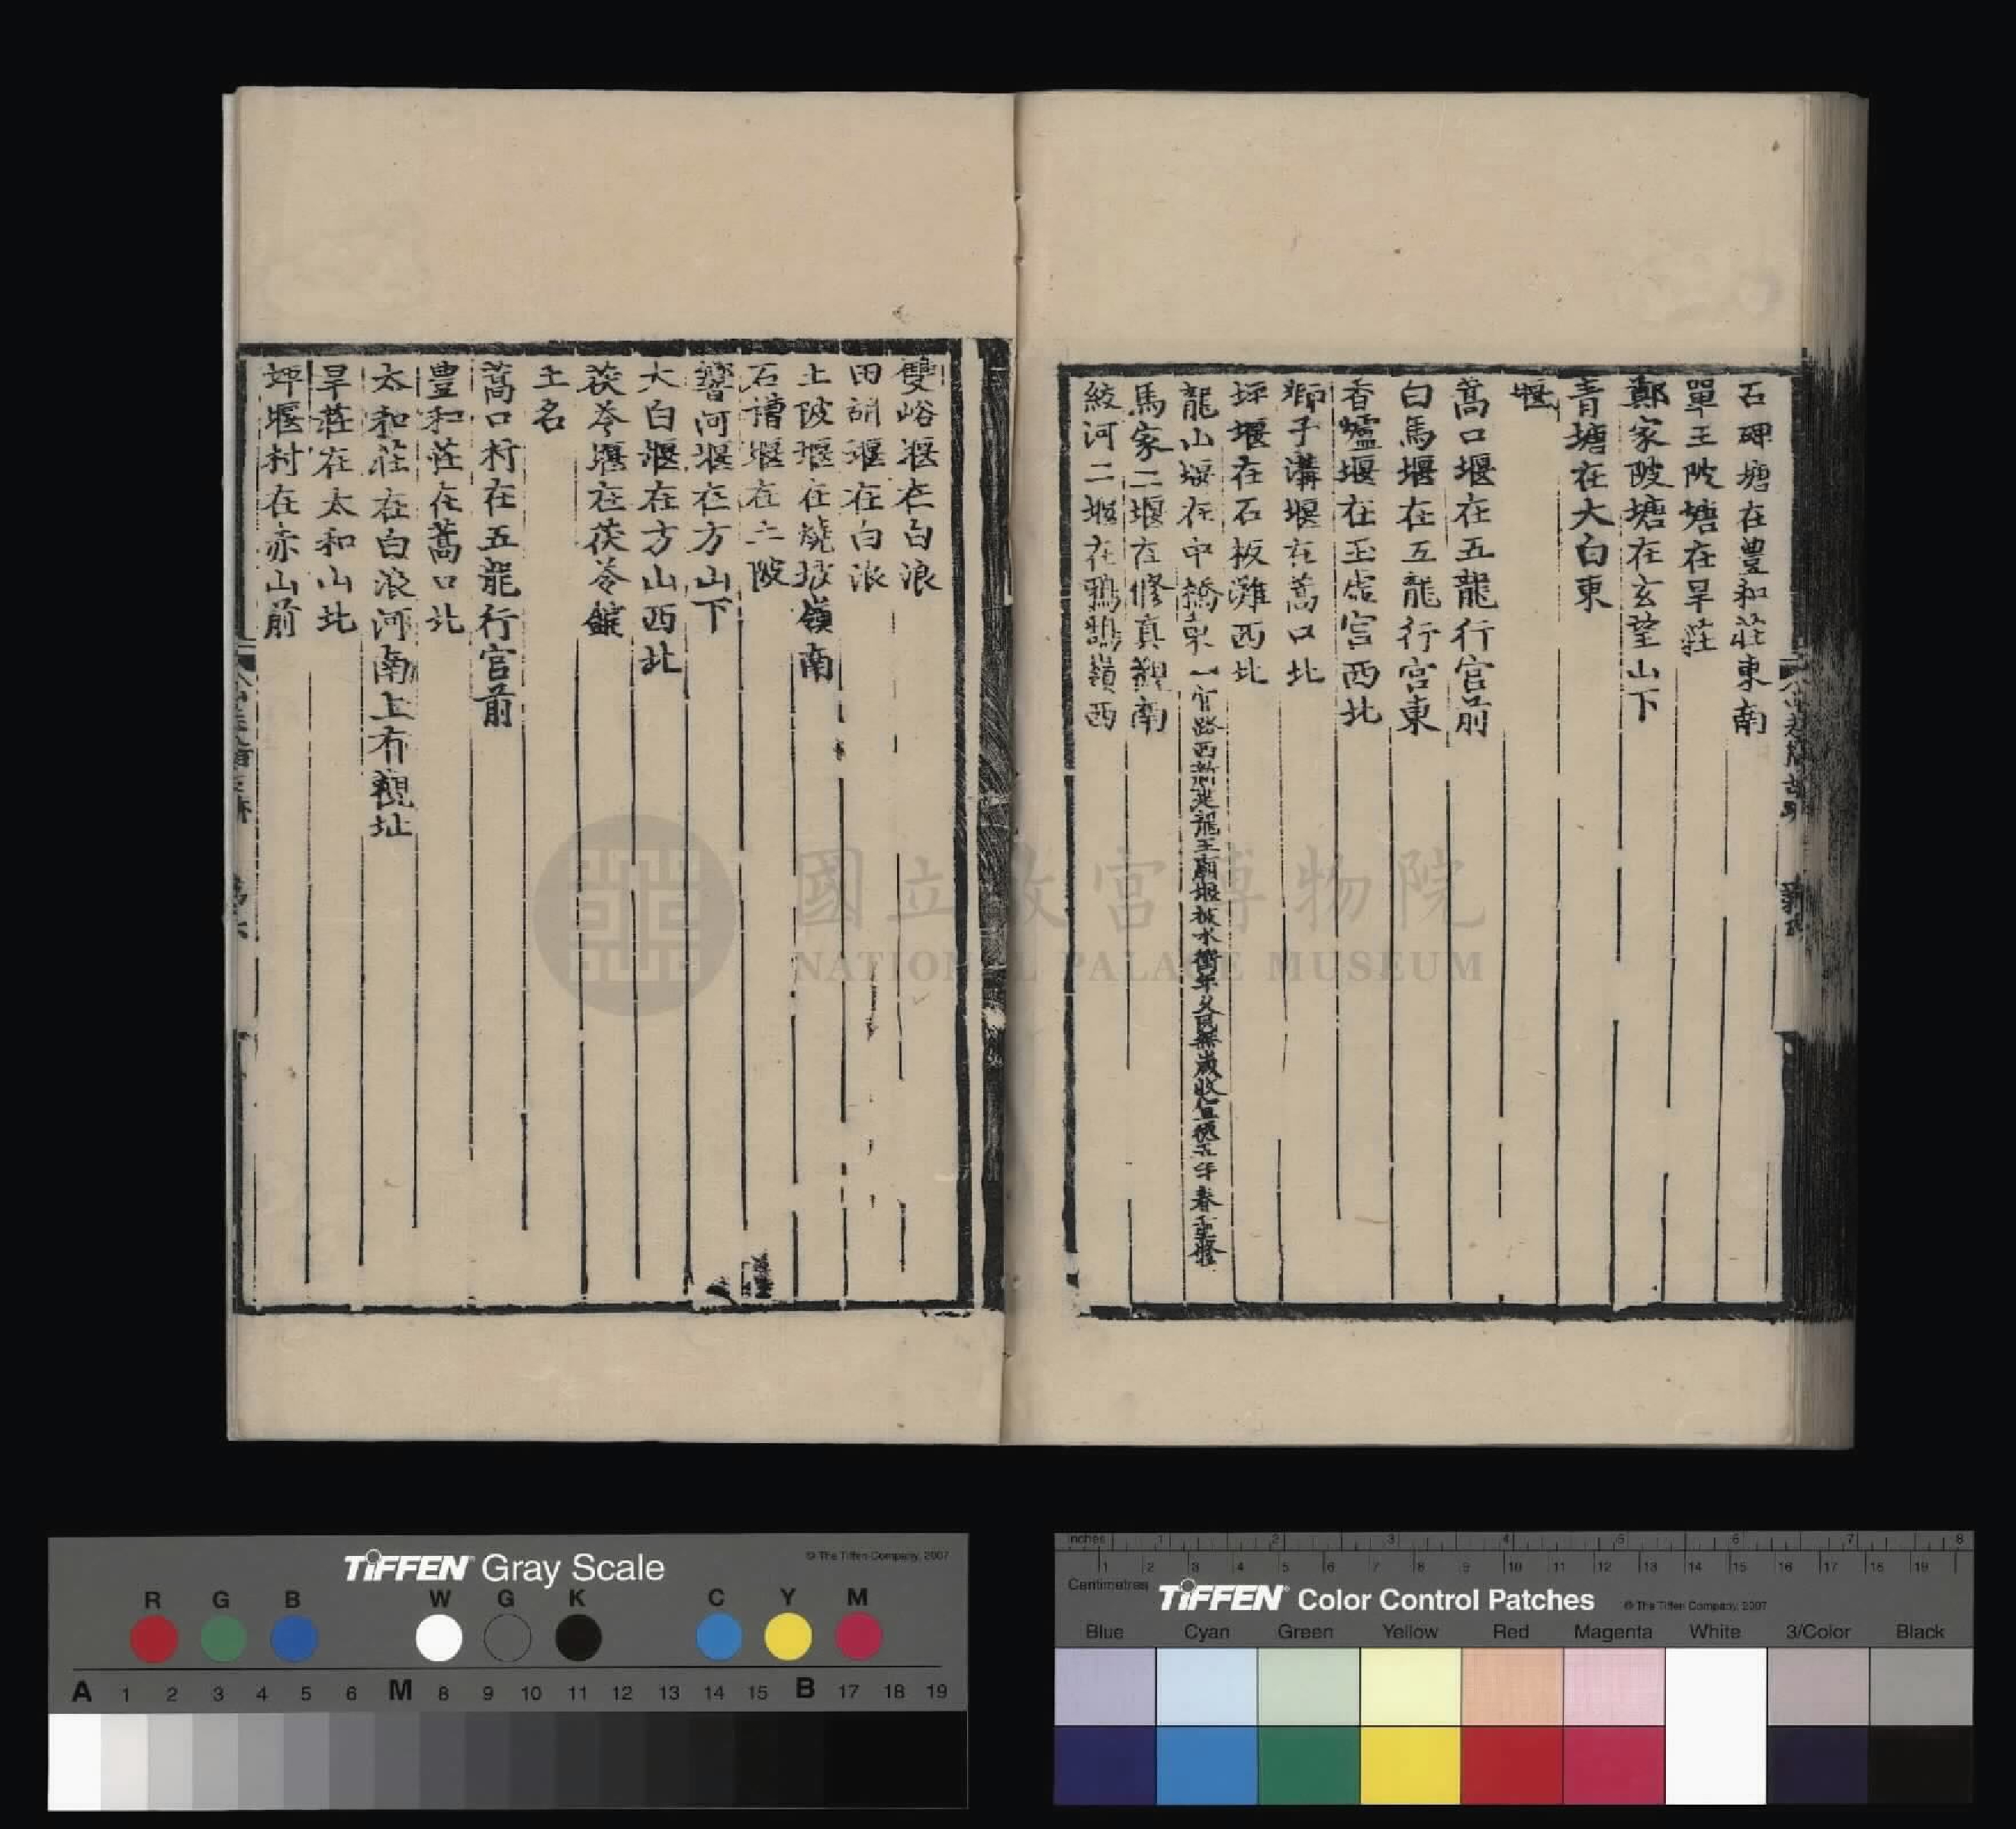 石碑塘在豊和莊東南
單王陂塘在旱莊
鄭家陂塘在玄望山下
青塘在大白東
堰
蒿口堰在五龍行宫前
白馬堰在五龍行宫東
香爐堰在玉虛宫西北
獅子溝堰在蒿口北
坪堰在石板灘西北
龍山堰在中橋東一官路西 龍王廟堰被水衝年久民無歲收宣德五年春重修
馬家二堰在修真觀南
絞河二堰在鴉鵲嶺西
雙峪堰在白浪
田湖堰在白浪
土陂堰在燒坡嶺南
石槽堰在土陂
響河堰在方山下
大白堰在方山西北
茯苓堰在茯苓
土名
蒿口村在五龍行宫前
豊和莊在蒿口北
太和莊在白浪河南上有觀址
旱莊在太和山北
坪堰村在赤山前
國立故宮博物院
NATIONAL PALACE MUSEUM
TIFFEN Gray Scale
© The Tiffen Company, 2007
R G B W G K C Y M
A 1 2 3 4 5 6 M 8 9 10 11 12 13 14 15 B 17 18 19
Inches 1 2 3 4 5 6 7 8
1 2 3 4 5 6 7 8 9 10 11 12 13 14 15 16 17 18 19
Centimetres
TIFFEN Color Control Patches
© The Tiffen Company, 2007
Blue Cyan Green Yellow Red Magenta White 3/Color Black